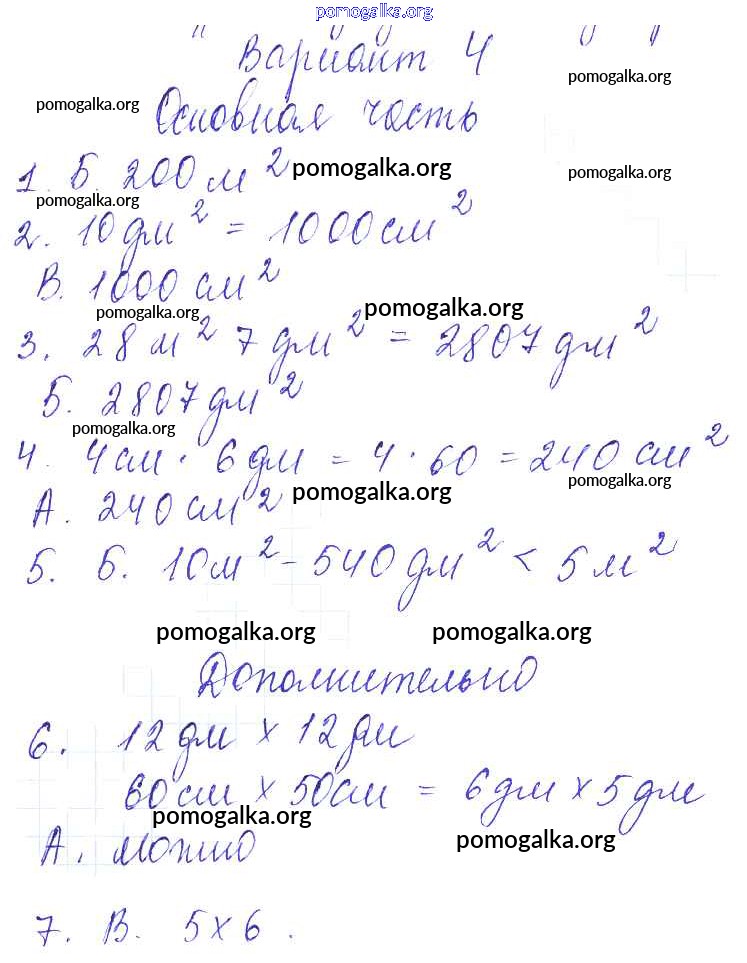 pomogalka.org
Вариант 4
pomogalka.org pomogalka.org
Основная часть
1. Б. 200 м² pomogalka.org pomogalka.org
pomogalka.org
2. 10 дм² = 1000 см²
В. 1000 см²
pomogalka.org pomogalka.org
3. 28 м² 7 дм² = 2807 дм²
Б. 2807 дм²
pomogalka.org
4. 4 см · 6 дм = 4 · 60 = 240 см²
pomogalka.org
А. 240 см² pomogalka.org
5. Б. 10 м² - 540 дм² < 5 м²
pomogalka.org pomogalka.org
Дополнительно
6. 12 дм х 12 дм
60 см х 50 см = 6 дм х 5 дм
pomogalka.org pomogalka.org
А. можно
7. В. 5 х 6.